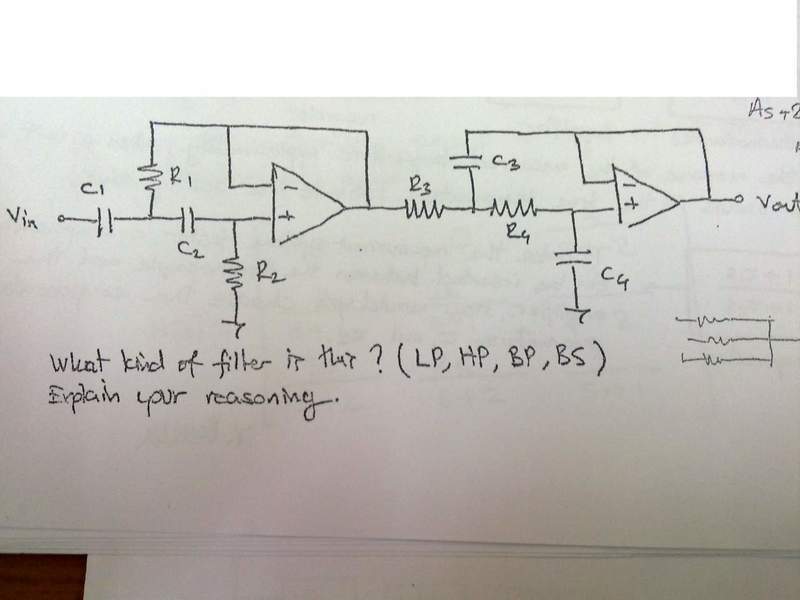 As+2
C1
R1
C2
R2
Vin
-
+
R3
C3
R4
C4
-
+
Vout
What kind of filter is this? (LP, HP, BP, BS)
Explain your reasoning.